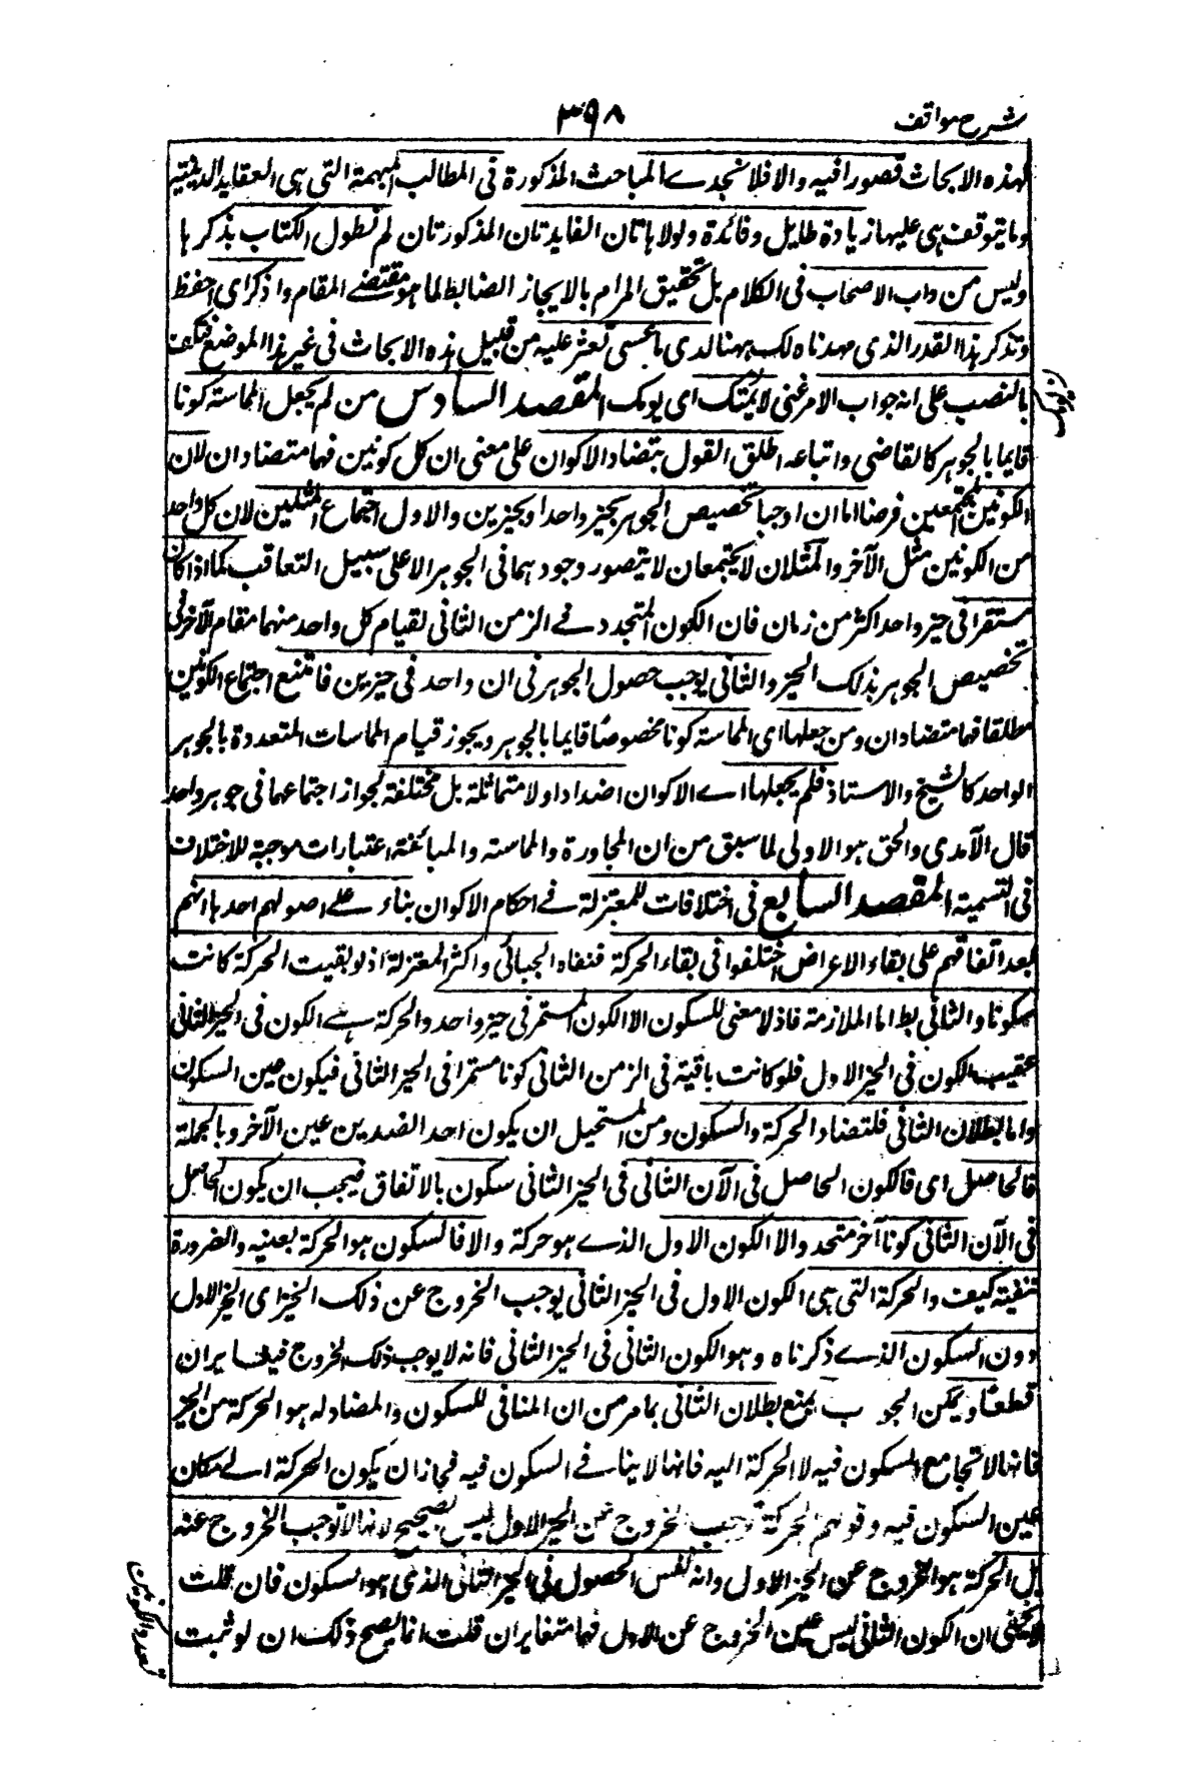 شرح مواقف
٣٩٨
لهذه الابحاث قصورا فيه والا فلا نجدے المباحث المذكورة فى المطالب المهمة التى هى العقايد الدينية
وما يتوقف هى عليها زيادة طايل وفائدة ولولا هاتان الفايدتان المذكورتان لم نطول الكتاب بذكرها
وليس من داب الاصحاب فى الكلام بل تحقيق المرام بالايجاز الضابط لما هو مقتضے المقام واذكر اى احفظ
وتذكر هذا القدر الذى مهدناه لك ههنا لدى ما عسى تعثر عليه من قبيل هذه الابحاث فى غير هذا الموضع فتكف
بالنصب على انه جواب الامر عنى لايمتك اى يومك المقصد السادس من لم يجعل المماسة كونا
قايما بالجوهر كالقاضى واتباعه اطلق القول بتضاد الاكوان على معنى ان كل كونين فهما متضادان لان
الكونين المجتمعين فرضا اما ان اوجبا تخصيص الجوهر بحيز واحد او بحيزين والاول اجتماع المثلين لان كل واحد
من الكونين مثل الآخر والمثلان لا يجتمعان لا يتصور وجودهما فى الجوهر الا على سبيل التعاقب كما اذا كان
مستقرا فى حيز واحد اكثر من زمان فان الكون المتجدد فے الزمن الثانى لقيام كل واحد منهما مقام الآخر فى
تخصيص الجوهر بذلك الحيز والثانى يوجب حصول الجوهر فى ان واحد فى حيزين فامتنع اجتماع الكونين
مطلقا فهما متضادان ومن جعلها اى المماسة كونا مخصوصا قايما بالجوهر ويجوز قيام المماسات المتعددة بالجوهر
الواحد كالشيخ والاستاذ فلم يجعلها اے الاكوان اضدادا ولا متماثلة بل مختلفة لجواز اجتماعها فى جوهر واحد
قال الآمدى والحق هو الاولى لما سبق من ان المجاورة والمماسة والمبائنة اعتبارات موجبة للاختلاف
فى التسمية المقصد السابع فى اختلافات للمعتزلة فے احكام الاكوان بناء علے اصولهم احدها انهم
بعد اتفاقهم على بقاء الاعراض اختلفوا فى بقاء الحركة فنفاه الجبائى واكثر المعتزلة اذ لو بقيت الحركة كانت
سكونا والثانى بط اما الملازمة فاذ لا معنى للسكون الا الكون المستمر فى حيز واحد والحركة هے الكون فى الحيز الثانى
عقيب الكون فى الحيز الاول فلو كانت باقية فى الزمن الثانى كونا مستمرا فى الحيز الثانى فيكون عين السكون
واما بطلان الثانى فلتضاد الحركة والسكون ومن المستحيل ان يكون احد الضدين عين الآخر وبالجملة
فالحاصل اى فالكون الحاصل فى الآن الثانى فى الحيز الثانى سكون بالاتفاق فيجب ان يكون الحاصل
فى الآن الثانى كونا آخر متجدد والا الكون الاول الذے هو حركة والا فالسكون هو الحركة بعينه والضرورة
تنفيه كيف والحركة التى هى الكون الاول فى الحيز الثانى يوجب الخروج عن ذلك الحيز اى الحيز الاول
دون السكون الذے ذكرناه وهو الكون الثانى فى الحيز الثانى فانه لا يوجب ذلك الخروج فيتغايران
قطعا ويمكن الجوب بمنع بطلان الثانى بما مر من ان المنافى للسكون والمضاد له هو الحركة من الحيز
فانها لا تجامع السكون فيه لا الحركة اليه فانها لا ينافے السكون فيه فجاز ان يكون الحركة الے مكان
عين السكون فيه وقولهم الحركة توجب الخروج عن الحيز الاول ليس بصحيح لانها لا توجب الخروج عنه
بل الحركة هو الخروج عن الحيز الاول وانه نفس الحصول فى الحيز الثانى الذى هو السكون فان قلت
لا يخفى ان الكون الثانى ليس عين الخروج عن الاول فهما متغايران قلت انما يصح ذلك ان لو ثبت
تعدد الكونين